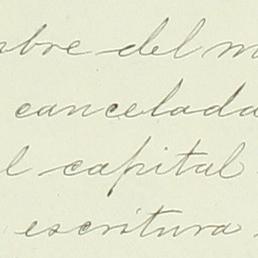 bre del m
cancelada
l capital
escritura